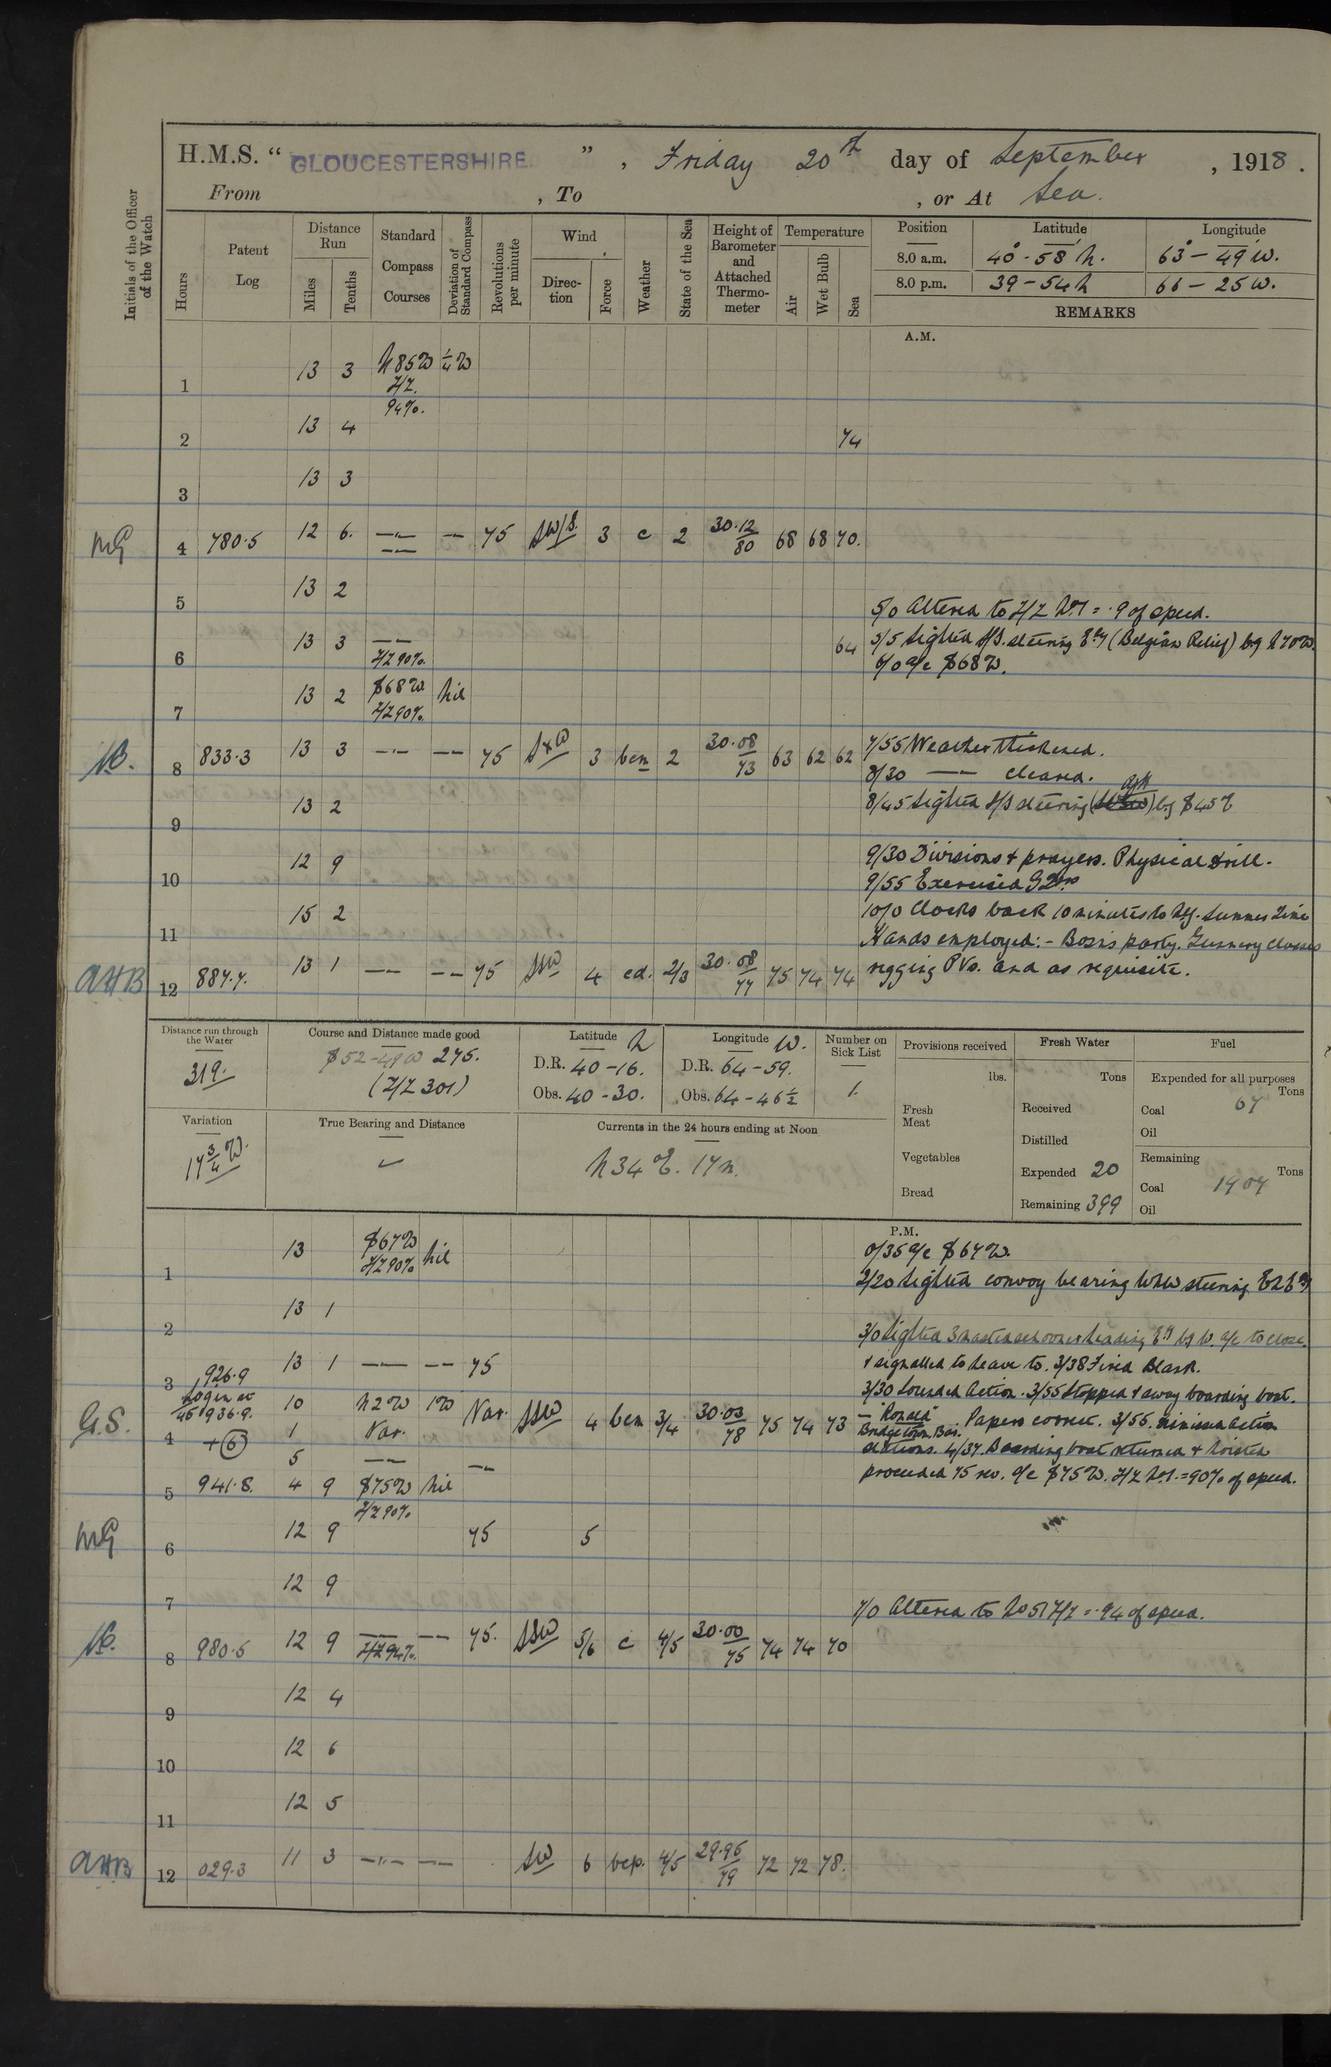 H.M.S. “ GLOUCESTERSHIRE ” , Friday 20th day of September , 1918 .
From , To , or At Sea.
Initials of the Officer of the Watch
Hours
Patent Log
Distance Run
Miles
Tenths
Standard Compass Courses
Deviation of Standard Compass
Revolutions per minute
Wind
Direction
Force
Weather
State of the Sea
Height of Barometer and Attached Thermometer
Temperature
Air
Wet Bulb
Sea
Position Latitude Longitude
8.0 a.m. 40°-58 N. 63°-49 W.
8.0 p.m. 39-54 N 66-25 W.
REMARKS
A.M.
1 13 3 N85W 1/4 W
Z/Z.
94%.
2 13 4 74
3 13 3
MG 4 780.5 12 6. —"— — 75 SW/S. 3 c 2 30.12/80 68 68 70.
5 13 2
5/0 Altered to Z/Z No.1 = .9 of speed.
6 13 3 —— Z/Z 90%. 64 5/5 Sighted S/S. steering E'ly (Belgian Relief) bg N70W.
6/0 a/c S68W.
7 13 2 S68W Z/Z 90%. Nil
8 833.3 13 3 —"— —— 75 SxW 3 bcm 2 30.08/73 63 62 62 7/55 Weather thickened.
8/30 —— cleared.
9 13 2 8/45 Sighted S/S steering bg S45E
10 12 9 9/30 Divisions & prayers. Physical Drill.
9/55 Exercised G.Qrs
11 15 2 10/0 Clocks back 10 minutes to Summer Time
Hands employed:- Bosns party. Gunnery classes
AHB 12 887.7. 13 1 —— —— 75 SSW 4 cd. 2/3 30.08/77 75 74 74 rigging PVs. and as requisite.
Distance run through the Water
319.
Course and Distance made good
S52-49W 275.
(Z/Z 301)
Latitude N
D.R. 40-16.
Obs. 40-30.
Longitude W.
D.R. 64-59.
Obs. 64-46½
Number on Sick List
1.
Provisions received
lbs.
Fresh Meat
Vegetables
Bread
Fresh Water
Tons
Received
Distilled
Expended 20
Remaining 399
Fuel
Expended for all purposes
Tons
Coal 67
Oil
Remaining
Tons
Coal 1907
Oil
Variation
17¾ W.
True Bearing and Distance
✓
Currents in the 24 hours ending at Noon
N34°E. 17 m.
P.M.
1 13 S67W Z/Z 90% Nil 0/35 a/c S67W.
2/20 Sighted convoy bearing WNW steering
2 13 1
3/0 Sighted 3 masted schooner heading E'ly bg W. a/c to close.
3 926.9 13 1 —— —— 75 & signalled to heave to. 3/38 Fired Blank.
Log in at
/45 936.9. 10 N2W 1W Var. SSW 4 bcm 3/4 30.03/78 75 74 73 3/30 Sounded Action. 3/55 Stopped & away boarding boat.
G.S. 4 +⑥ 1 Var. — "Ronald" Bridgetown Bar. Papers correct. 3/55. Dismissed action
5 —— stations. 4/37. Boarding boat returned & hoisted
5 941.8. 4 9 S75W Nil —— proceeded 75 rev. a/c S75W. Z/Z No.1.=90% of speed.
Z/Z 90%
MG 6 12 9 75 5
7 12 9
7/0 Altered to No 5 Z/Z = .94 of speed.
8 980.5 12 9 —— Z/Z 94%. —— 75. SSW 5/6 c 4/5 30.00/75 74 74 70
9 12 4
10 12 6
11 12 5
AHB 12 029.3 11 3 —"— —— SW 6 bcp. 4/5 29.96/79 72 72 78.